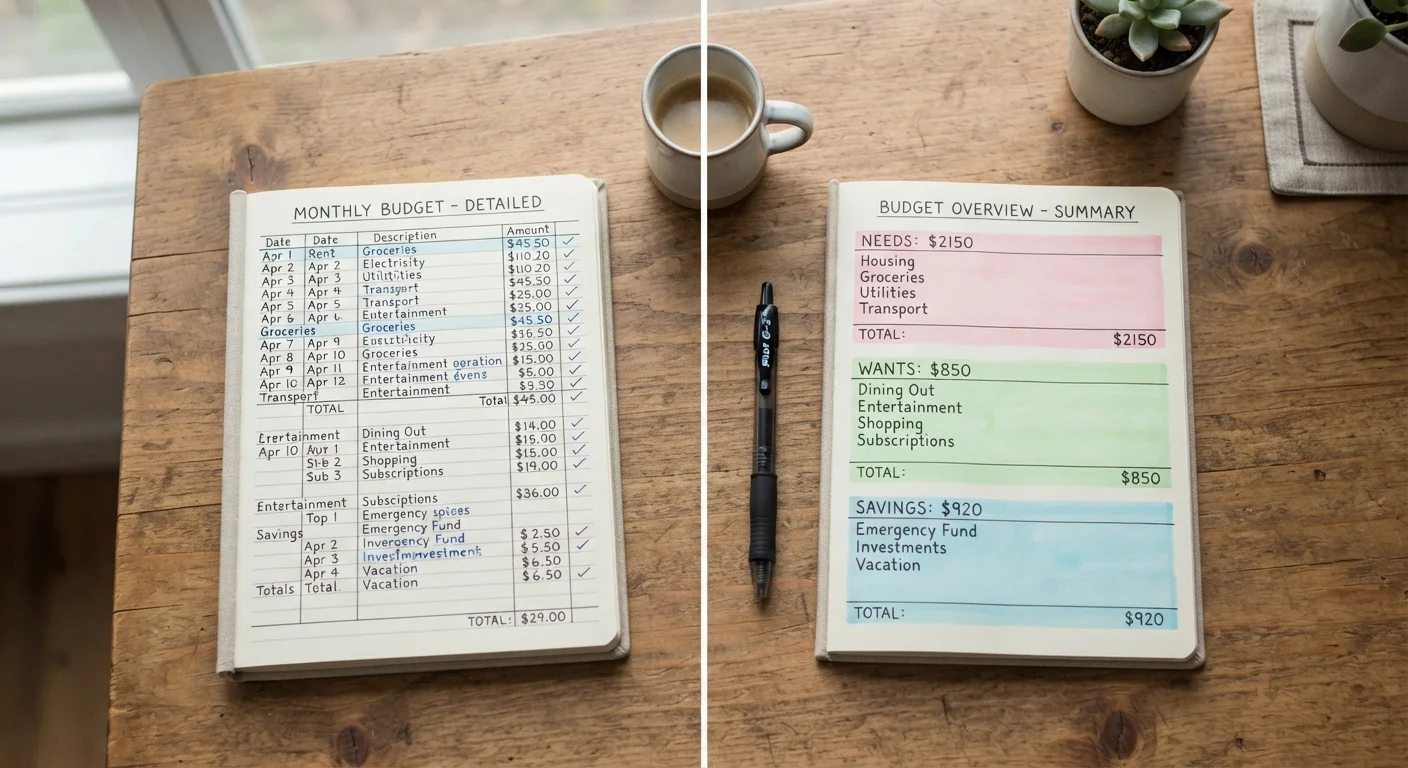 MONTHLY BUDGET - DETAILED
Date Date Description Amount
Apr 1 Rent Groceries $45.50 ✓
Apr 2 Apr 2 Electricity $110.20 ✓
Apr 3 Apr 3 $110.20 ✓
Apr 4 Apr 4 Transport $45.50 ✓
Apr 5 Apr 5 Transport $25.00 ✓
Apr 6 Apr Entertainment $25.00 ✓
Groceries Groceries $45.50 ✓
Apr 7 Apr 9 $16.50 ✓
Apr 8 Apr 10 Groceries $25.00 ✓
Apr 9 Apr 11 Entertainment $15.00 ✓
Apr 10 Apr 12 Entertainment evens $5.00 ✓
Transport Entertainment $9.90 ✓
TOTAL Total $45.00 ✓
Dining Out $14.00 ✓
Apr 10 Entertainment $15.00 ✓
Shopping $15.00 ✓
Sub 3 Subscriptions $19.00 ✓
Entertainment Subsciptions $36.00 ✓
Top 1 Emergency spices
Savings Emergency Fund $2.50 ✓
Apr 2 Invergency Fund $5.50 ✓
Apr 3 $6.50
Apr 4 Vacation $6.50 ✓
Totals Total. Vacation
TOTAL: $29.00
BUDGET OVERVIEW - SUMMARY
NEEDS: $2150
Housing
Groceries
Utilities
Transport
TOTAL: $2150
WANTS: $850
Dining Out
Entertainment
Shopping
Subscriptions
TOTAL: $850
SAVINGS: $920
Emergency Fund
Investments
Vacation
TOTAL: $920